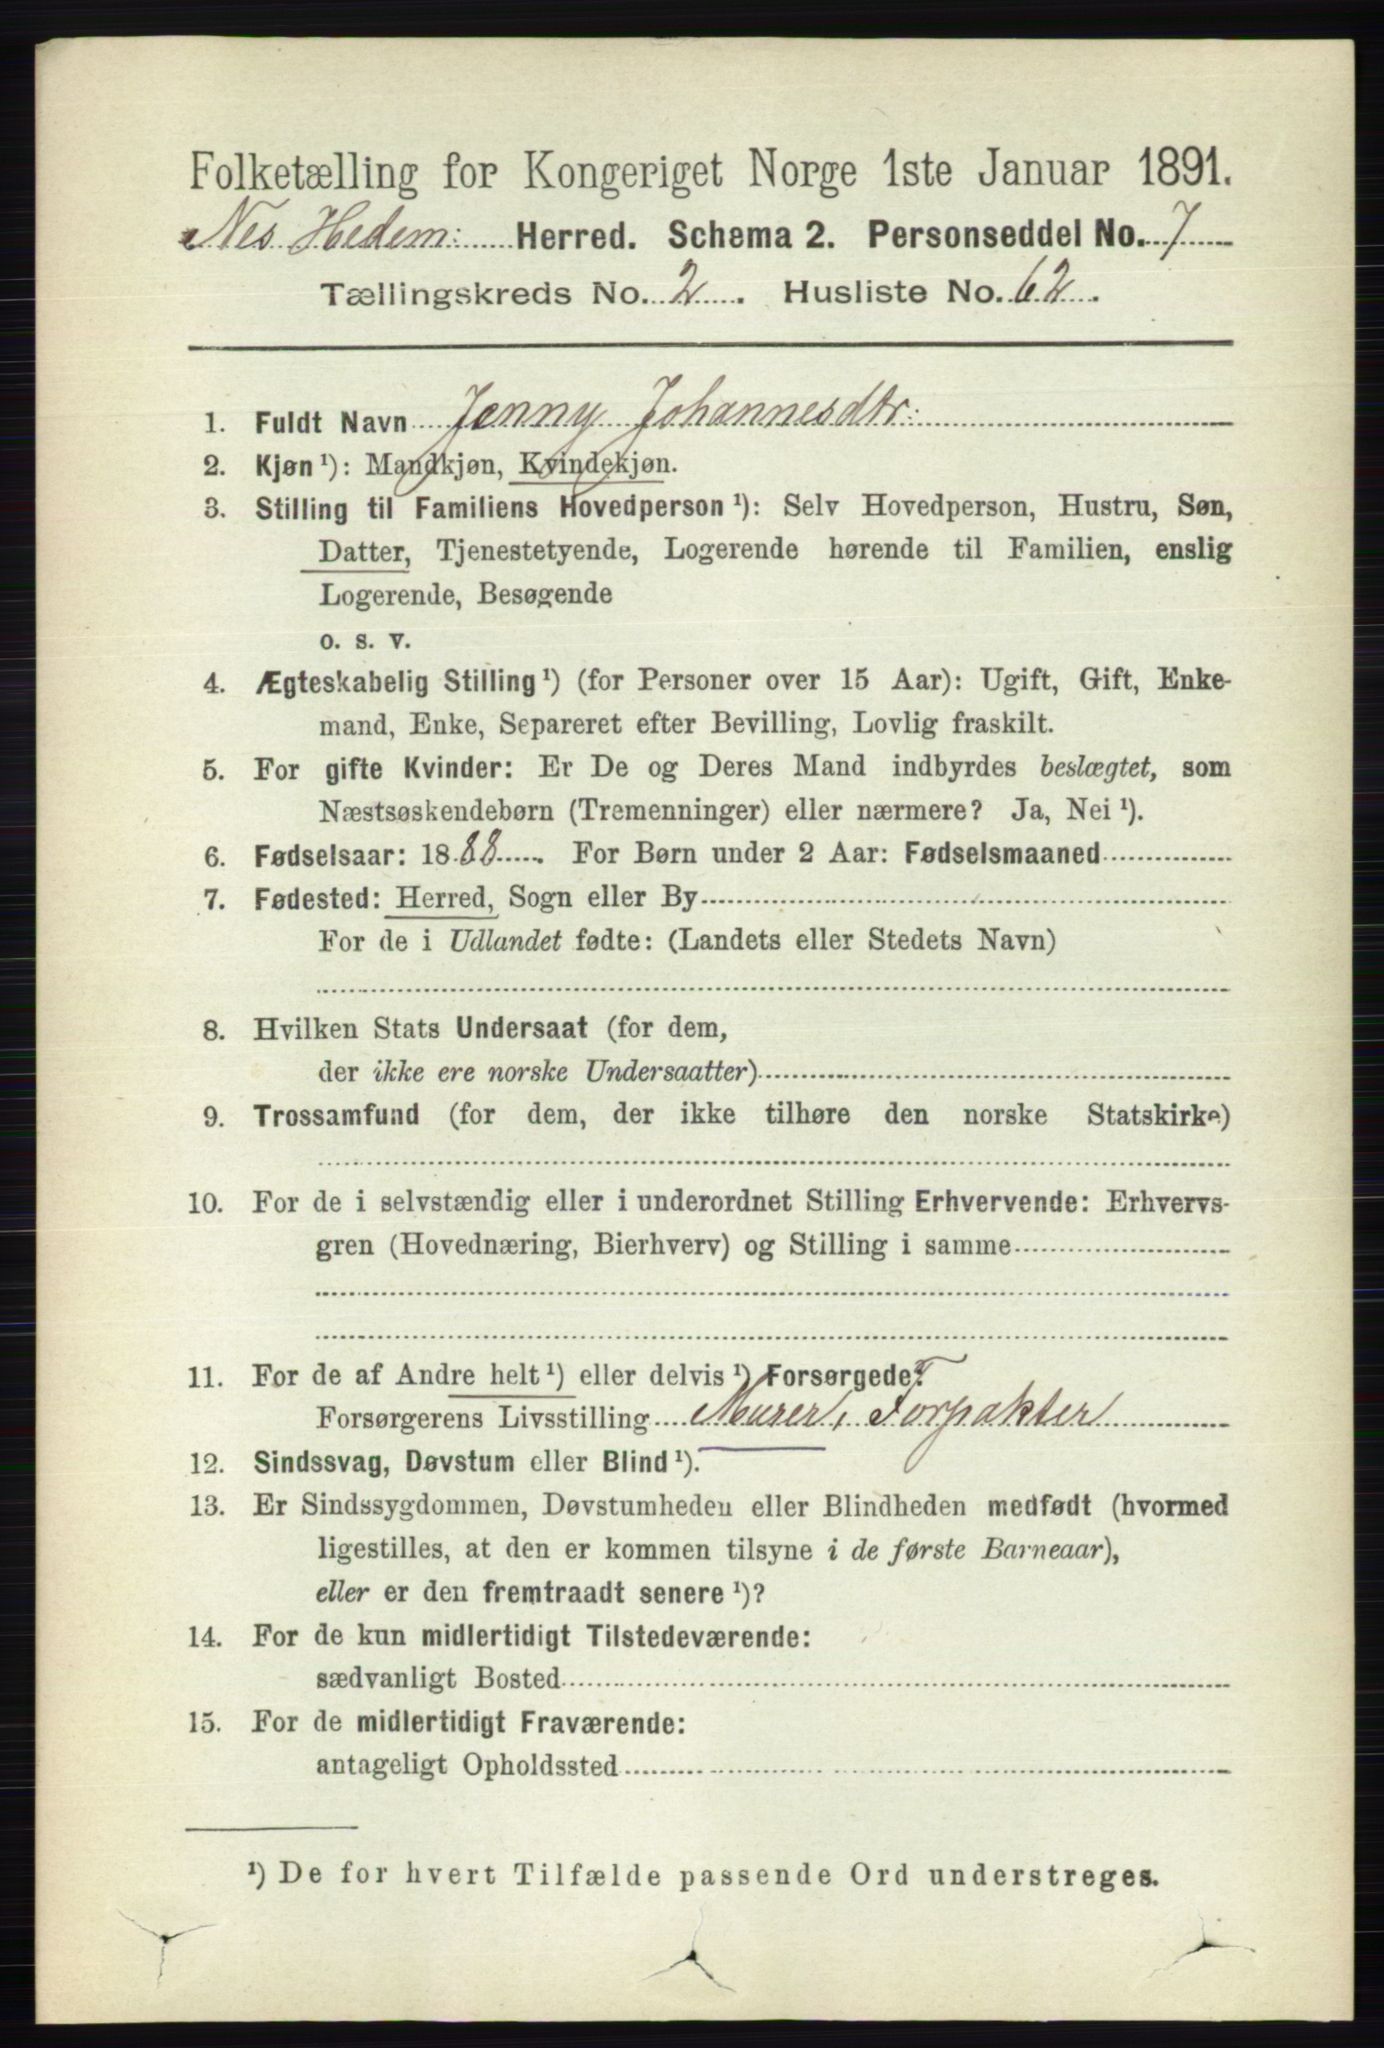 Folketælling for Kongeriget Norge 1ste Januar 1891.
Nes Hedem: Herred. Schema 2. Personseddel No. 7
Tællingskreds No. 2. Husliste No. 62.
1. Fuldt Navn Jenny Johannesdtr:
2. Kjøn ¹): Mandkjøn, Kvindekjøn.
3. Stilling til Familiens Hovedperson ¹): Selv Hovedperson, Hustru, Søn,
Datter, Tjenestetyende, Logerende hørende til Familien, enslig
Logerende, Besøgende
o. s. v.
4. Ægteskabelig Stilling ¹) (for Personer over 15 Aar): Ugift, Gift, Enke-
mand, Enke, Separeret efter Bevilling, Lovlig fraskilt.
5. For gifte Kvinder: Er De og Deres Mand indbyrdes beslægtet, som
Næstsøskendebørn (Tremenninger) eller nærmere? Ja, Nei ¹).
6. Fødselsaar: 1888. For Børn under 2 Aar: Fødselsmaaned
7. Fødested: Herred, Sogn eller By
For de i Udlandet fødte: (Landets eller Stedets Navn)
8. Hvilken Stats Undersaat (for dem,
der ikke ere norske Undersaatter)
9. Trossamfund (for dem, der ikke tilhøre den norske Statskirke)
10. For de i selvstændig eller i underordnet Stilling Erhvervende: Erhvervs-
gren (Hovednæring, Bierhverv) og Stilling i samme
11. For de af Andre helt ¹) eller delvis ¹) Forsørgede:
Forsørgerens Livsstilling Murer, Forpakter
12. Sindssvag, Døvstum eller Blind ¹).
13. Er Sindssygdommen, Døvstumheden eller Blindheden medfødt (hvormed
ligestilles, at den er kommen tilsyne i de første Barneaar),
eller er den fremtraadt senere ¹)?
14. For de kun midlertidigt Tilstedeværende:
sædvanligt Bosted
15. For de midlertidigt Fraværende:
antageligt Opholdssted
¹) De for hvert Tilfælde passende Ord understreges.